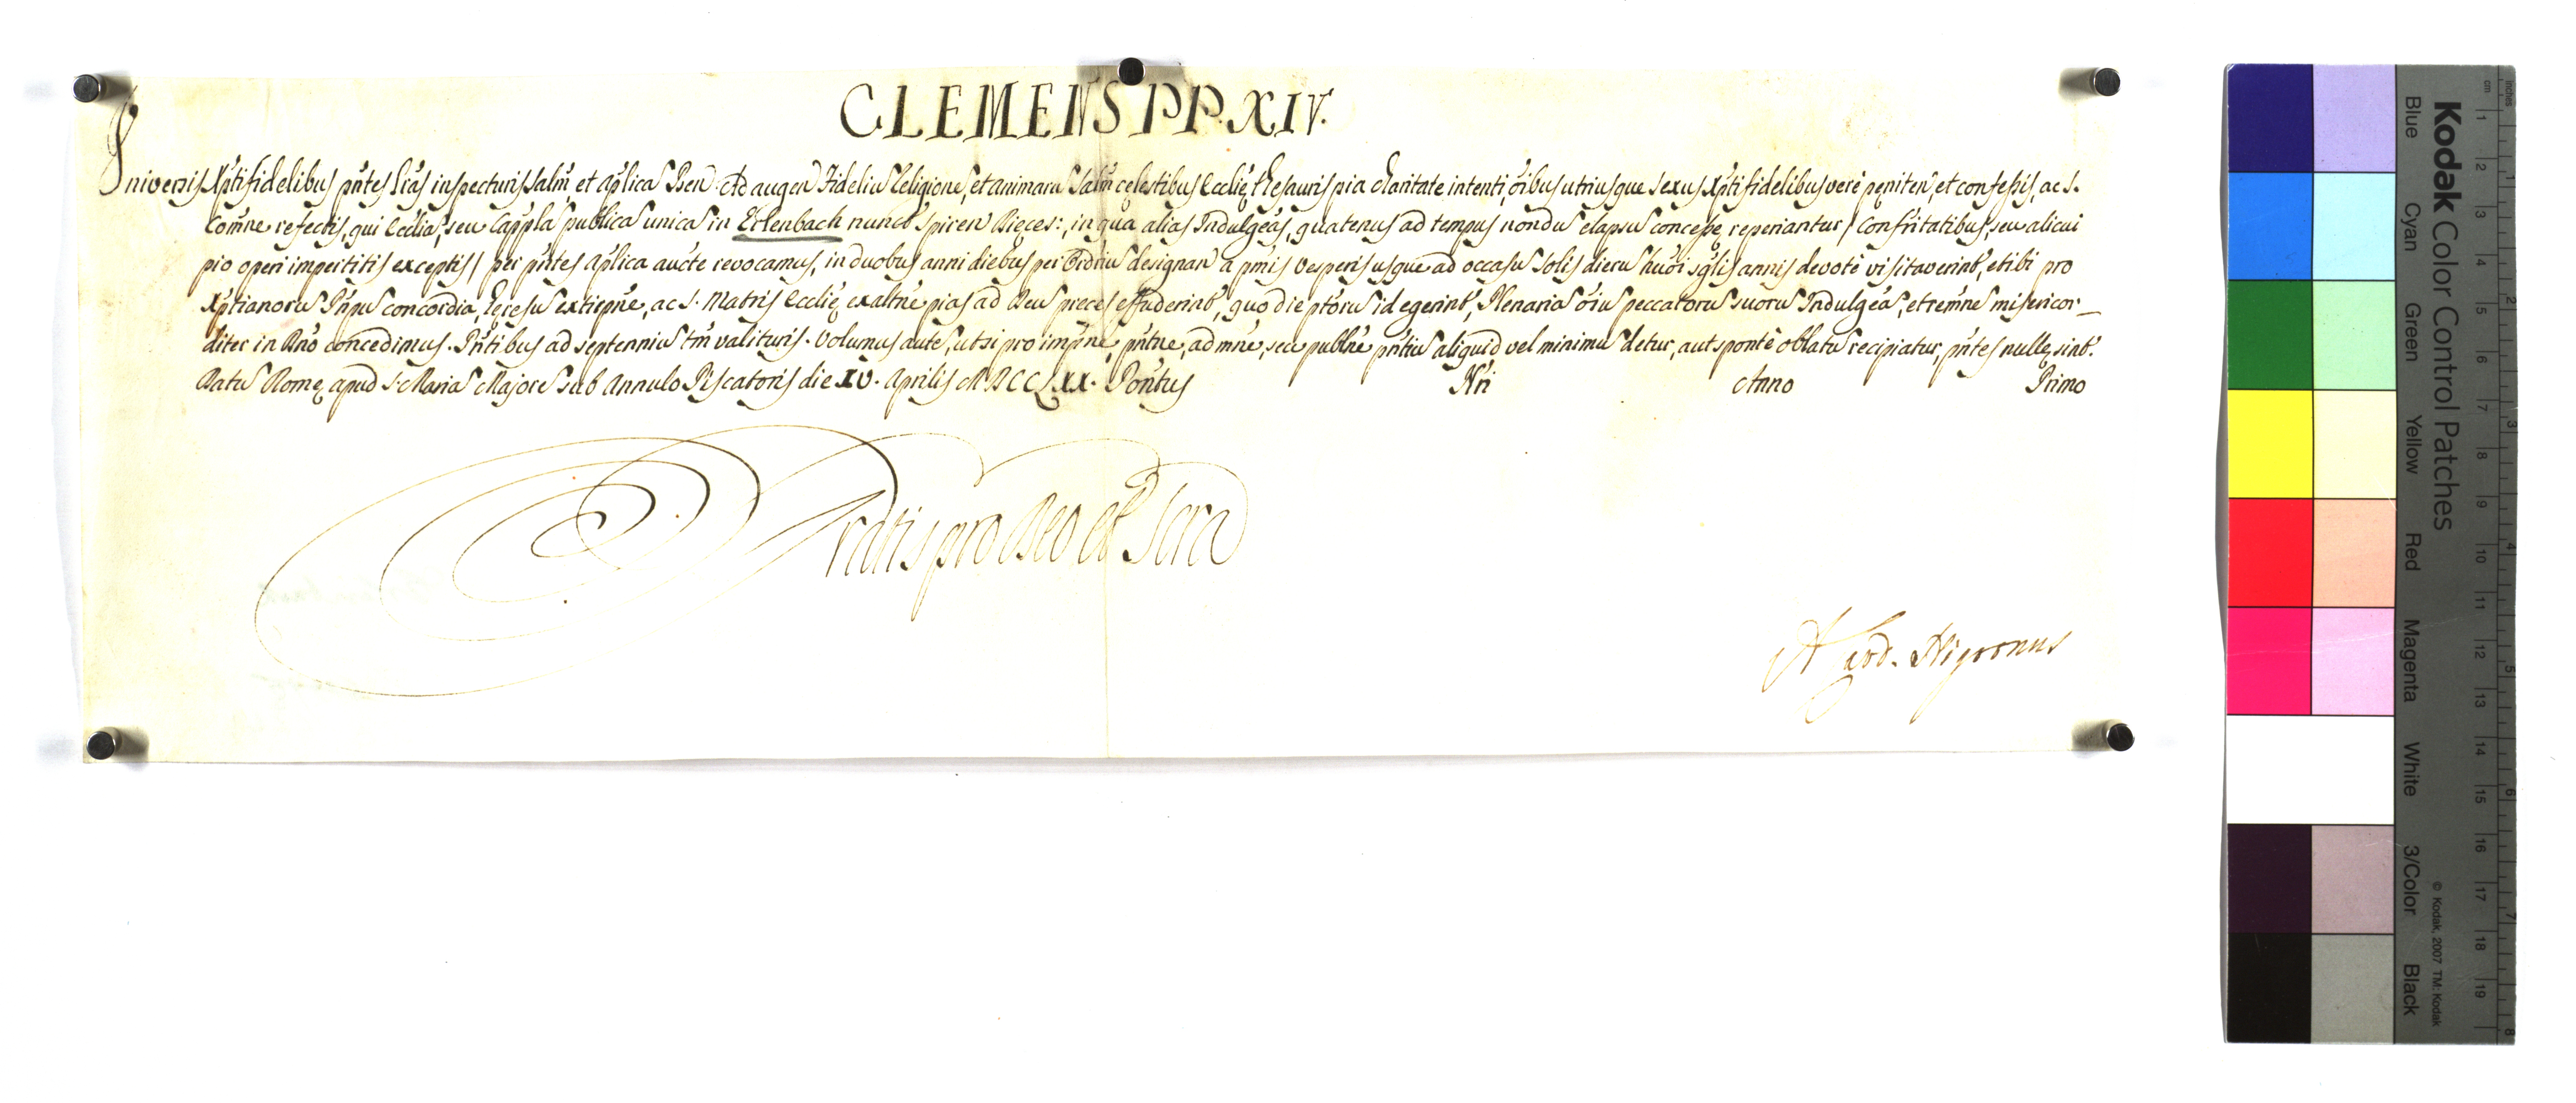 CLEMENS PP. XIV.
Universis Xpti fidelibus pñtes lr̃as inspecturis salm̃ et aplica Ben. Ad augen Fideliu Religione, et animaru salm̃ celestibus Ecclie thesauris pia charitate intenti, oibus utriusque sexus Xpti fidelibus vere peniten, et confessis, ac s.
Comne refectis, qui Ecclia, seu Cappla publica unica in Erlenbach nunct Spiren Dieces:, in qua alias Indulgeas, quatenus ad tempus nondu elapsu concesse reperiantur / Confritatibus, seu alicui
pio operi impertitis exceptis / per pñtes aplica aucte revocamus, in duobus anni diebus per Ordriu designan a pmis Vesperis usque ad occasu Solis dieru huoi sglis annis devote visitaverint, et ibi pro
Xptianoru Pñpu concordia, heresu extirpne, ac s. Matris Ecclie exaltne pias ad Deu preces effuderint, quo die ptoru id egerint, Plenaria oiu peccatoru suoru Indulgea, et remne misericor_
diter in Dño concedimus. Pñtibus ad septenniu tm̃ valituris. Volumus aute, ut si pro impne, pñtne, admne, seu publne pñtiu aliquid vel minimu detur, aut sponte oblatu recipiatur, pñtes nulle sint.
Datu Rome, apud S. Maria Majore sub Annulo Piscatoris die XV. Aprilis MDCCLXX. Pontus Nri Anno Primo
Gratis pro Deo et Scra
A Card. Nigronus
Kodak Color Control Patches
Blue Cyan Green Yellow Red Magenta White 3/Color Black
© Kodak, 2007 TM: Kodak
inches
cm
1 2 3 4 5 6 7 8 9 10 11 12 13 14 15 16 17 18 19
1 2 3 4 5 6 7 8